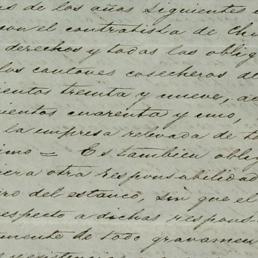 es de los años siguientes
con el contratista de Chu
derechos y todas las oblig
los cantones cosecheros de
cientos treinta y nueve, ac
cientos cuarenta y uno,
la empresa relevada de t
imo = Es tambien oblig
era otra responsabilidad
ro del estanco, sin que el
respecto a dichas respons
mente de todo gravamen